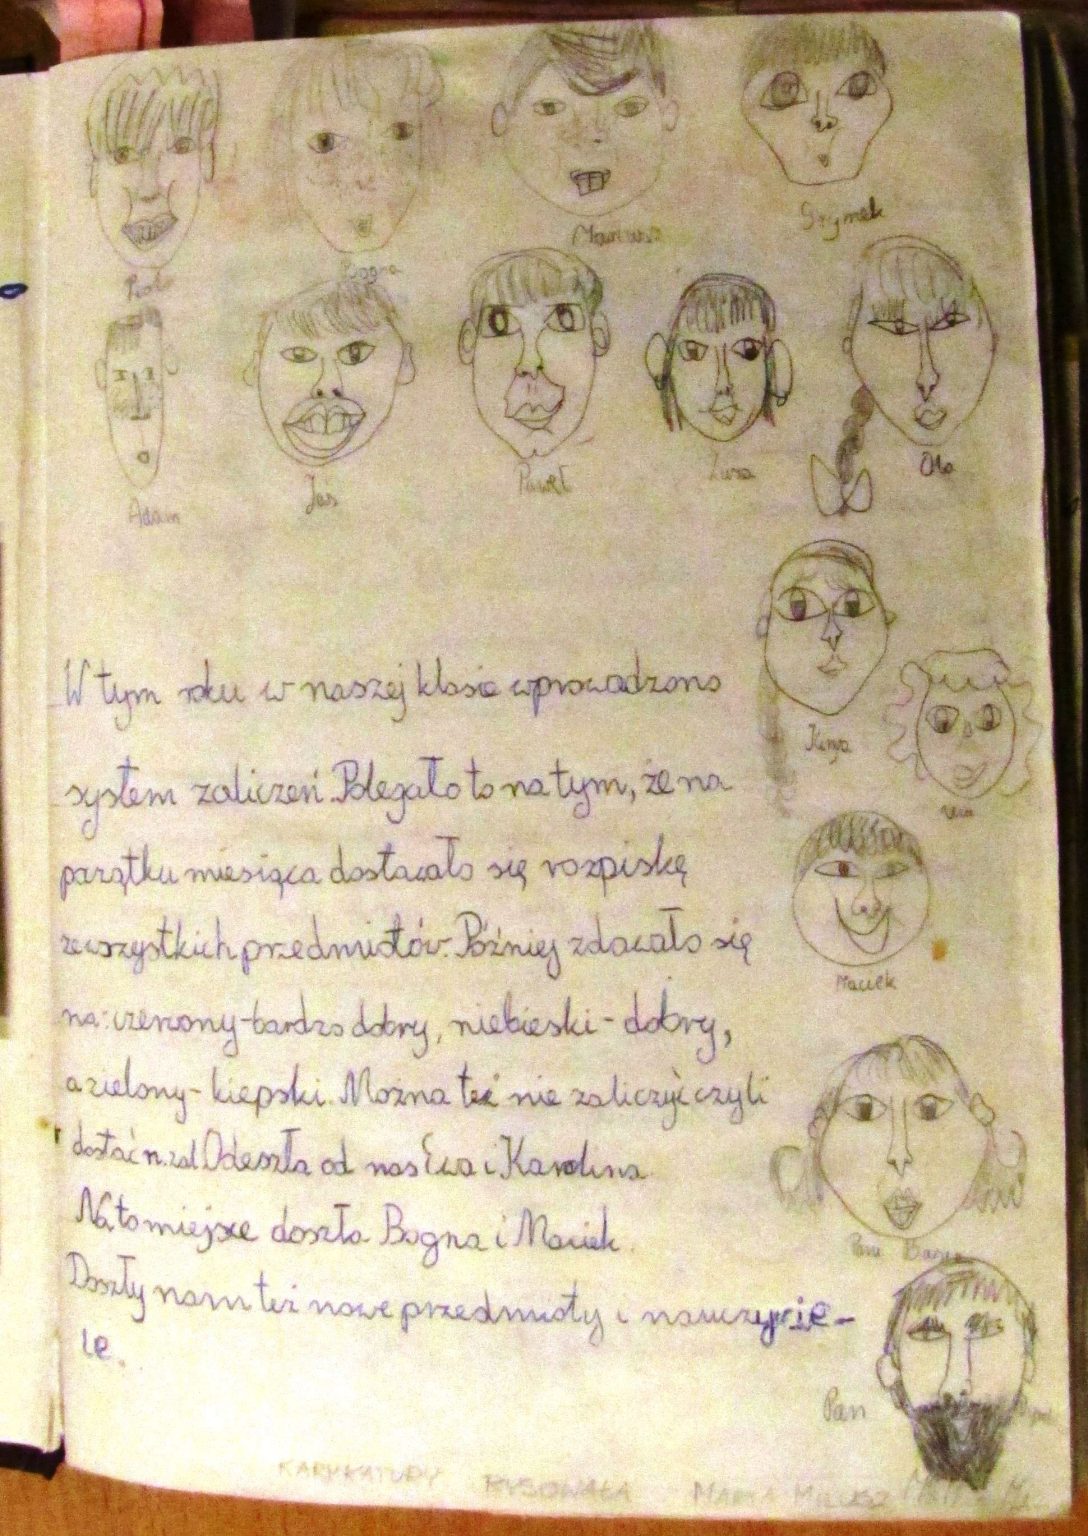 Mariusz
Grymek
Bogna
Adam
Jaś
Paweł
Zuza
Ola
Kinga
Maciek
Pani Basia
Pan
W tym roku w naszej klasie wprowadzono
system zaliczeń. Polegało to na tym, że na
początku miesiąca dostawało się rozpiskę
ze wszystkich przedmiotów. Później zdawało się
na: czerwony - bardzo dobry, niebieski - dobry,
a zielony - kiepski. Można też nie zaliczyć czyli
dostać n.zal. Odeszła od nas Ewa i Karolina
Na to miejsce doszła Bogna i Maciek.
Doszły nam też nowe przedmioty i nauczycie-
le.
KARYKATURY RYSOWAŁA MARTA